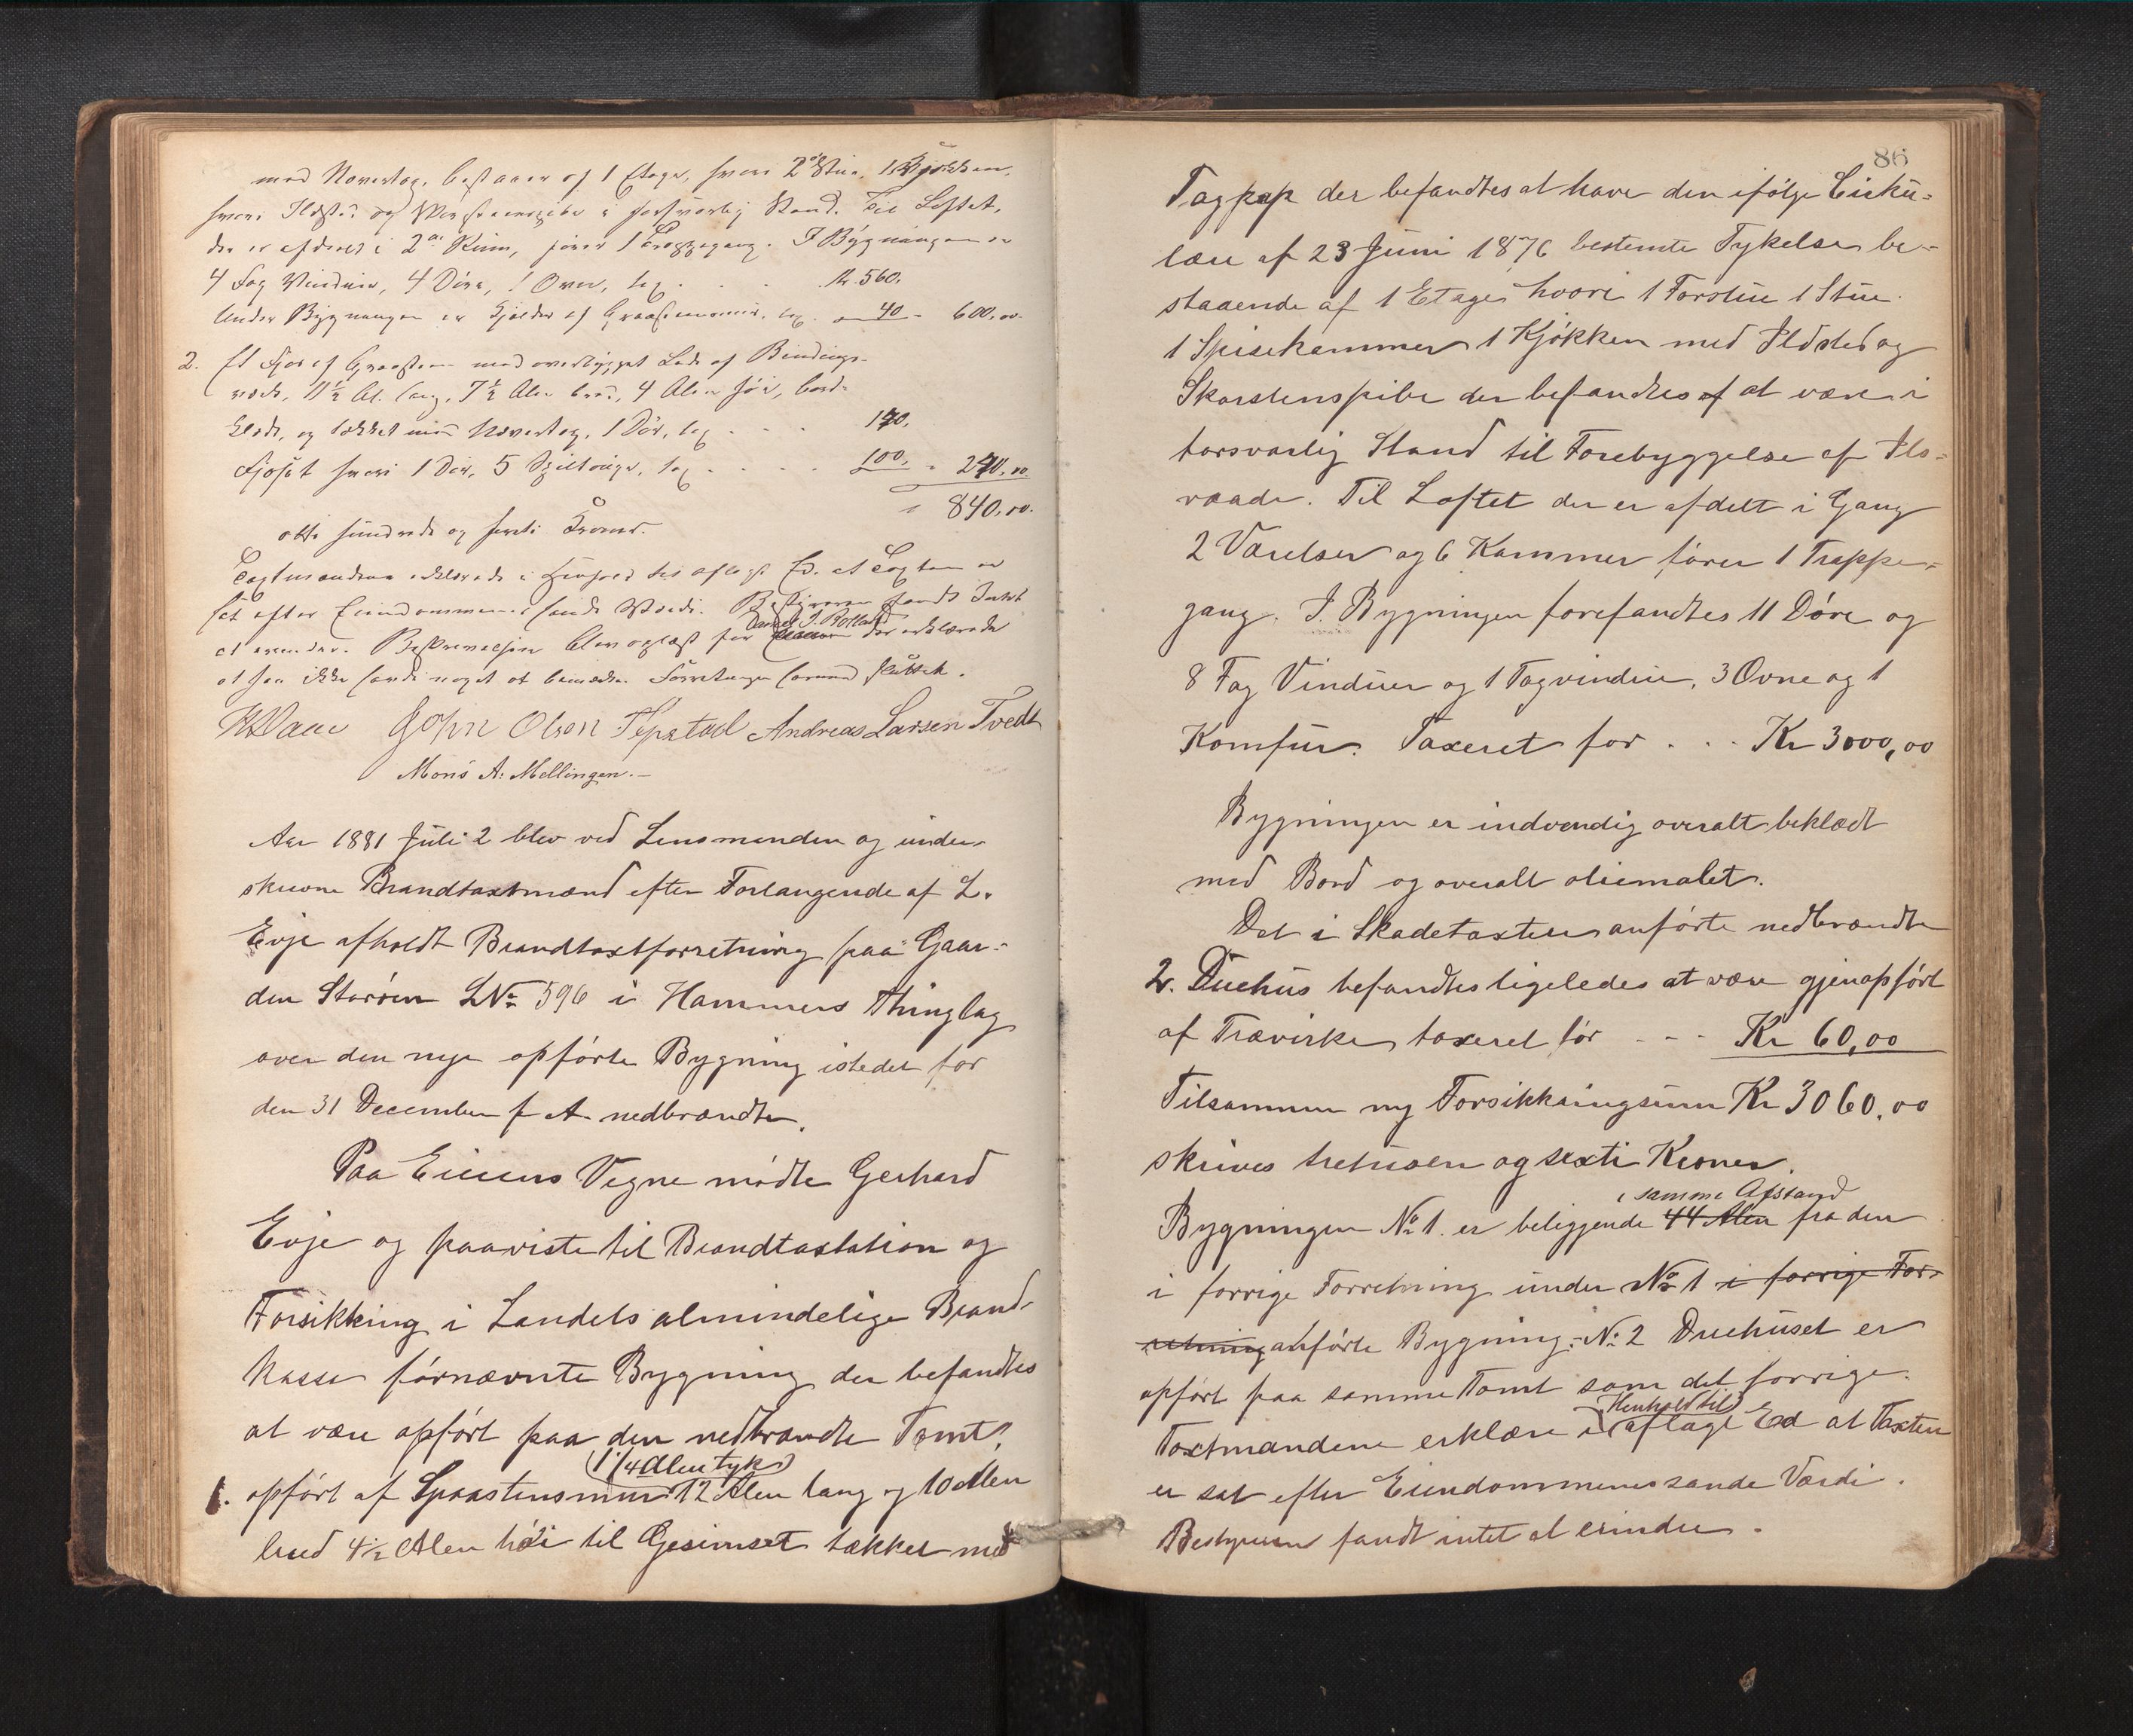 med Nævertag, bestaaer af 1 Etage, hvori 2 Stue, 1 Kjøkken,
hvori Ildsted og Skorsteenspibe i forsvarlig Stand. Til Loftet,
der er afdeelt i 2de Rum, fører 1 Trappegang. I Bygningen er
4 Fag Vinduer, 4 Døre, 1 Oven, tax. . . . Kr. 560.
Under Bygningen er Kjelder af Graasteensmuur, tax. - 40 - 600,00.
2. Et Fjøs af Graasteen med overbygget Lade af Bindings-
værk, 11½ Al. lang, 7½ Alen bred, 4 Alen høi, bord-
klædt, og tækket med Nævertag, 1 Dør, tax . . . . 140.
Fjøset hvori 1 Dør, 5 Spiltouge, tax . . . . . 100. - 240,00.
840,00.
otte hundrede og forti Kroner.
Taxtmændene erklærede i Henhold til aflagt Ed. at Taxten er
sat efter Eiendommenes sande Værdi. Bestyreren fandt Intet
at erindre. Beskrivelsen blev oplæst for Daniel J. Rolland der erklærede
at han ikke havde noget at bemærke. Forretningen saaledes sluttet.
John Olsen Tepstad Andreas Larsen Tvedt
Mons A. Mellingen.-
Aar 1881 Juli 2 blev ved Lensmanden og under-
skrevne Brandtaxtmænd efter Forlangende af L.
Evje afholdt Brandtaxtforretning paa Gaar-
den Storøen LNo 596 i Hammers Thinglag
over den nye opførte Bygning istedet for
den 31 December f A nedbrændte.
Paa Eierens Vegne mødte Gerhard
Evje og paaviste til Brandtaxtation og
Forsikkring i Landets almindelige Brand-
kasse førnævnte Bygning der befandtes
at være opført paa den nedbrændte Tomt,
1 1/4 Alen tyk
1. opført af Graastensmur 12 Alen lang og 10 Alen
bred 4½ Alen høi til Gesimset tækket med
86
Tagpap der befandtes at have den ifølge Cirku-
lære af 23 Juni 1876 bestemte Tykelse be-
staaende af 1 Etage hvori 1 Forstue 1 Stue
1 Spisekammer 1 Kjøkken med Ildsted og
Skorstenspibe der befandtes af at være i
forsvarlig Stand til Forebyggelse af Ilds-
vaade. Til Loftet der er afdelt i Gang
2 Værelser og 6 Kammer fører 1 Trappe-
gang. I Bygningen forefandtes 11 Døre og
8 Fag Vinduer og 1 Tagvindue, 3 Ovne og 1
Komfur. Taxeret for . . . Kr 3000,00
Bygningen er indvendig overalt beklædt
med Bord og overalt oliemalet.
Det i Skadetaxten anførte nedbrændte
2. Duehus befandtes ligeledes at være gjenopført
af Trævirke, taxeret før - - - Kr 60,00
Tilsammen ny Forsikkringsum Kr 3060,00
skrives tretusen og sexti Kroner.
i samme Afstand
Bygningen No 1 er beliggende 44 Alen fra den
i forrige Forretning under No 1 i forrige For-
retning anførte Bygning. No 2 Duehuset er
opført paa samme Tomt som det forrige.
Henhold til
Taxtmændene erklære i aflagt Ed at Taxten
er sat efter Eiendommenes sande Værdi.
Bestyreren fandt intet at erindre.